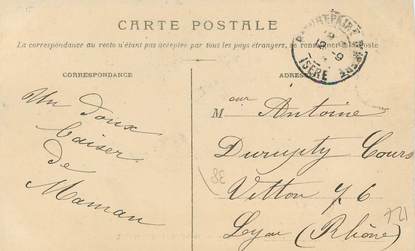 CARTE POSTALE
La correspondance au recto n'étant pas acceptée par tous les pays étrangers, se renseigner à la poste
CORRESPONDANCE
ADRESSE
Un doux
baiser
de
Maman
Mr Antoine
Cours
Vitton 76
Lyon (Rhône)
ISÈRE
38